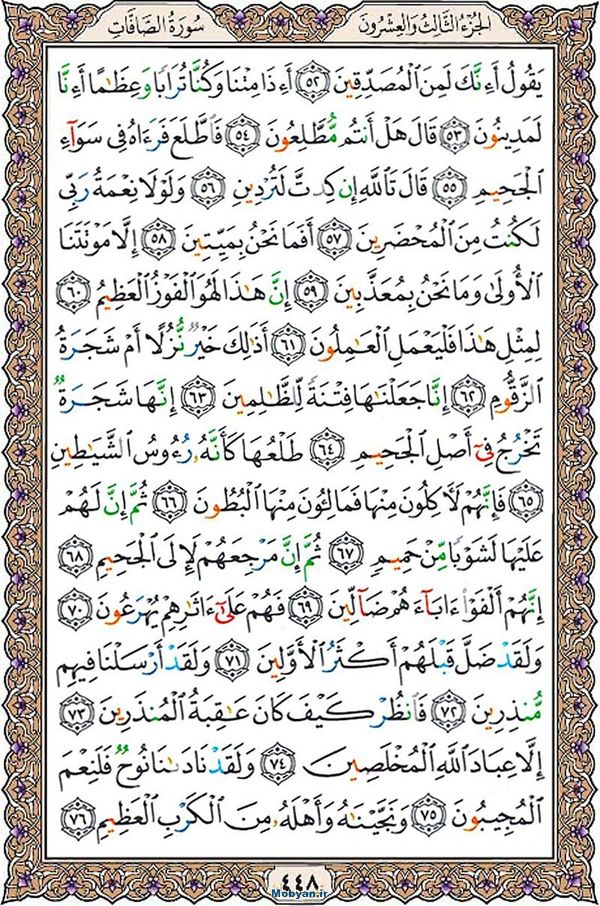 الجزء الثالث والعشرون سورة الصافات
يَقُولُ أَءِنَّكَ لَمِنَ ٱلْمُصَدِّقِينَ ٥٢ أَءِذَا مِتْنَا وَكُنَّا تُرَابًا وَعِظَٰمًا أَءِنَّا
لَمَدِينُونَ ٥٣ قَالَ هَلْ أَنتُم مُّطَّلِعُونَ ٥٤ فَٱطَّلَعَ فَرَءَاهُ فِى سَوَآءِ
ٱلْجَحِيمِ ٥٥ قَالَ تَٱللَّهِ إِن كِدتَّ لَتُرْدِينِ ٥٦ وَلَوْلَا نِعْمَةُ رَبِّى
لَكُنتُ مِنَ ٱلْمُحْضَرِينَ ٥٧ أَفَمَا نَحْنُ بِمَيِّتِينَ ٥٨ إِلَّا مَوْتَتَنَا
ٱلْأُولَىٰ وَمَا نَحْنُ بِمُعَذَّبِينَ ٥٩ إِنَّ هَٰذَا لَهُوَ ٱلْفَوْزُ ٱلْعَظِيمُ ٦٠
لِمِثْلِ هَٰذَا فَلْيَعْمَلِ ٱلْعَٰمِلُونَ ٦١ أَذَٰلِكَ خَيْرٌ نُّزُلًا أَمْ شَجَرَةُ
ٱلزَّقُّومِ ٦٢ إِنَّا جَعَلْنَٰهَا فِتْنَةً لِّلظَّٰلِمِينَ ٦٣ إِنَّهَا شَجَرَةٌ
تَخْرُجُ فِىٓ أَصْلِ ٱلْجَحِيمِ ٦٤ طَلْعُهَا كَأَنَّهُۥ رُءُوسُ ٱلشَّيَٰطِينِ
٦٥ فَإِنَّهُمْ لَءَاكِلُونَ مِنْهَا فَمَالِـُٔونَ مِنْهَا ٱلْبُطُونَ ٦٦ ثُمَّ إِنَّ لَهُمْ
عَلَيْهَا لَشَوْبًا مِّنْ حَمِيمٍ ٦٧ ثُمَّ إِنَّ مَرْجِعَهُمْ لَإِلَى ٱلْجَحِيمِ ٦٨
إِنَّهُمْ أَلْفَوْا۟ ءَابَآءَهُمْ ضَآلِّينَ ٦٩ فَهُمْ عَلَىٰٓ ءَاثَٰرِهِمْ يُهْرَعُونَ ٧٠
وَلَقَدْ ضَلَّ قَبْلَهُمْ أَكْثَرُ ٱلْأَوَّلِينَ ٧١ وَلَقَدْ أَرْسَلْنَا فِيهِم
مُّنذِرِينَ ٧٢ فَٱنظُرْ كَيْفَ كَانَ عَٰقِبَةُ ٱلْمُنذَرِينَ ٧٣
إِلَّا عِبَادَ ٱللَّهِ ٱلْمُخْلَصِينَ ٧٤ وَلَقَدْ نَادَىٰنَا نُوحٌ فَلَنِعْمَ
ٱلْمُجِيبُونَ ٧٥ وَنَجَّيْنَٰهُ وَأَهْلَهُۥ مِنَ ٱلْكَرْبِ ٱلْعَظِيمِ ٧٦
٤٤٨
Mobyan.ir